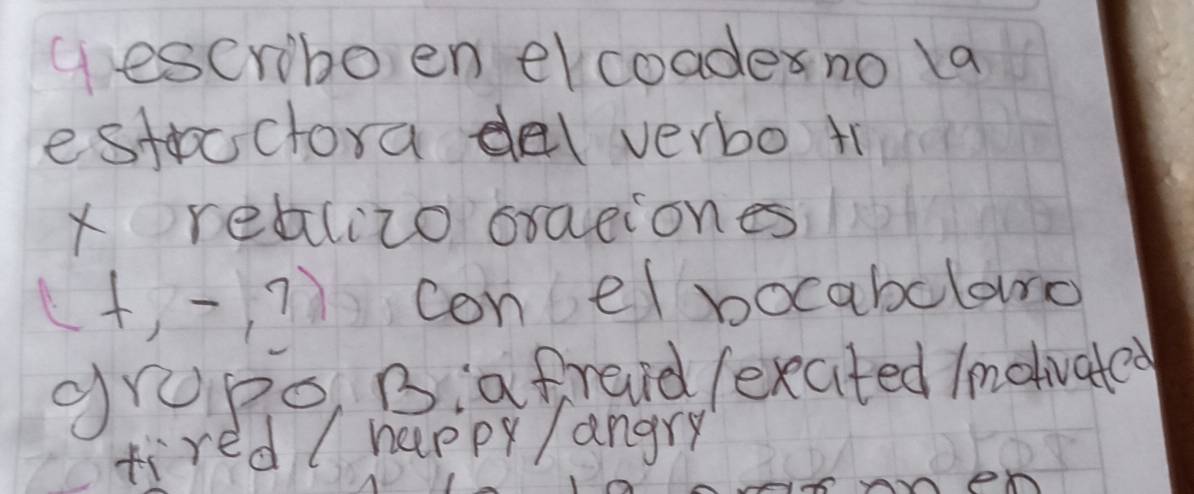 4 escribo en el coaderno la
estroctora del verbo ti
x realizo oraciones
(+, -, ?) con el bocabolaro
grupo B: afraid / excited / motivated
tired / happy / angry